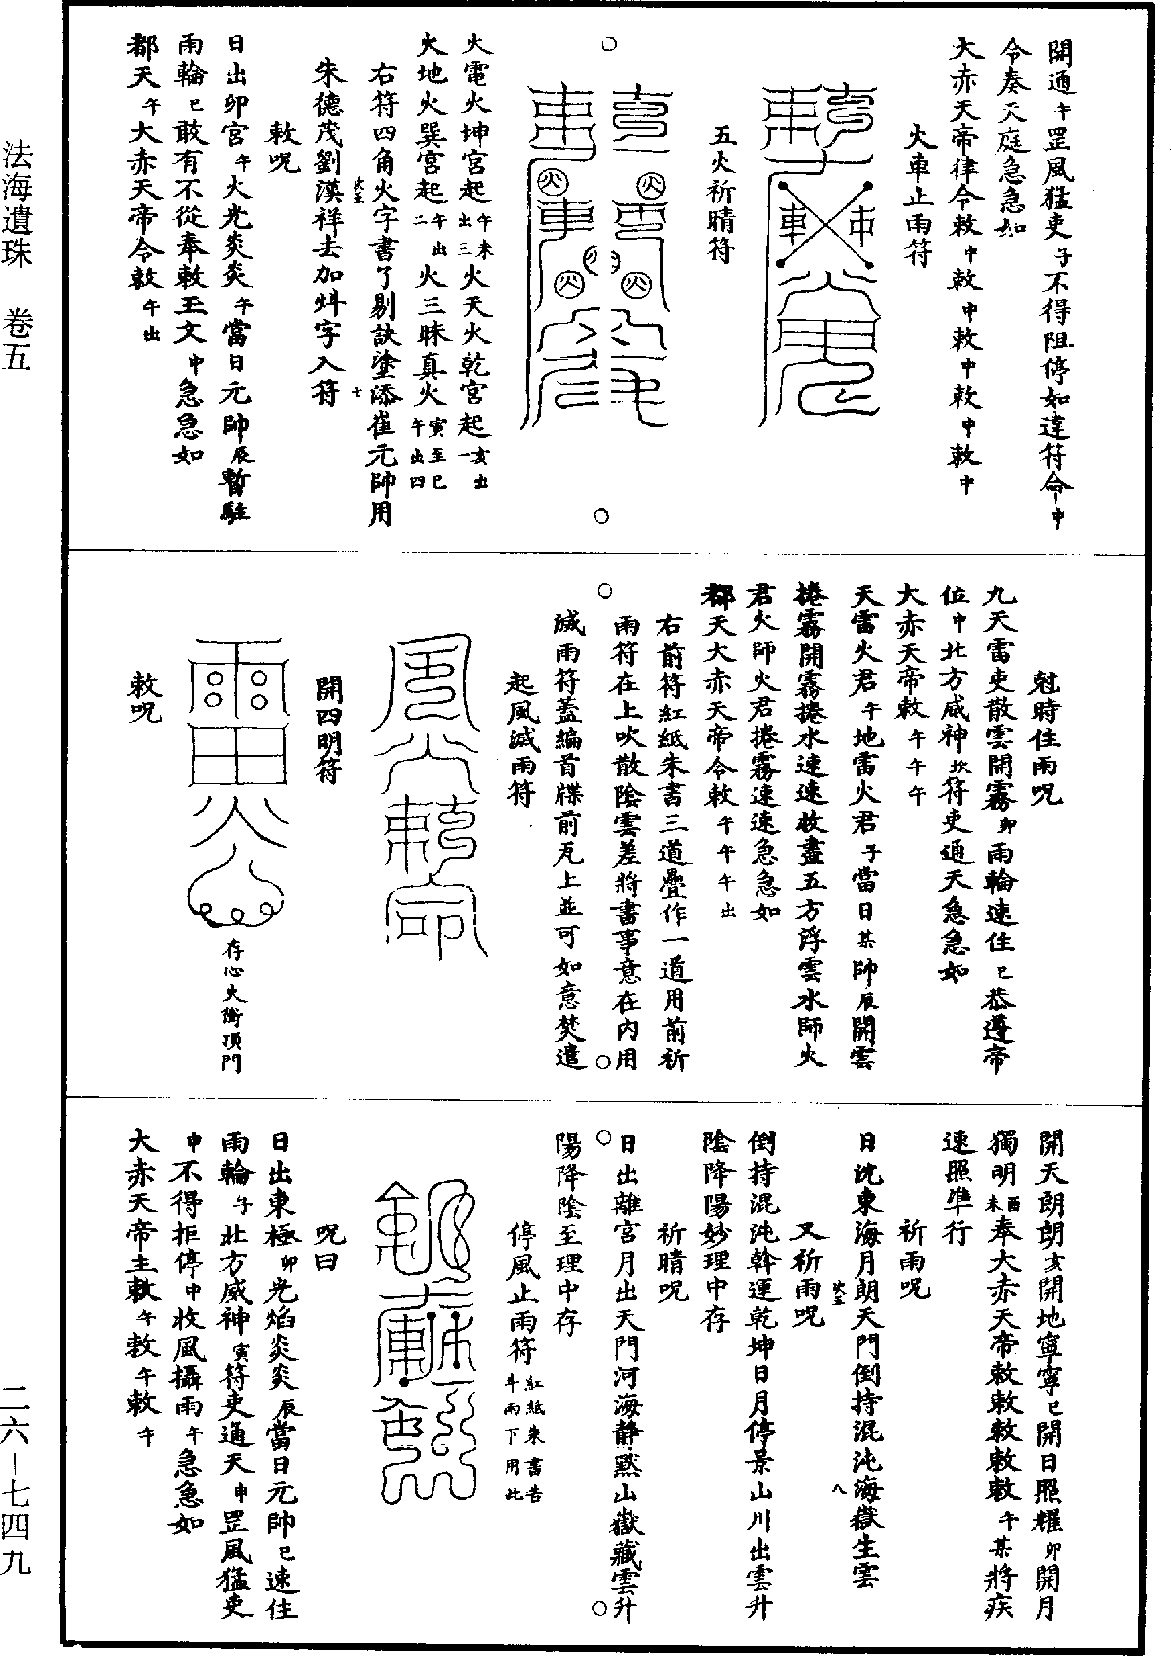 開通午罡風猛吏子不得阻停如違符命申
令奏天庭急急如
大赤天帝律令敕申敕申敕申敕申敕申
火車止雨符
五火祈晴符
火電火坤宮起午未出三火天火乾宮起亥出一
火地火巽宮起午出二火三昧真火寅至巳午出四
右符四角火字書了剔訣塗添崔元帥用
朱德茂劉漢祥去加炓字入符
敕呪
日出卯宮午火光炎炎午當日元帥辰暫駐
雨輪巳敢有不從奉敕玉文申急急如
都天午大赤天帝令敕午出
尅時住雨呪
九天雷吏散雲開霧卯雨輪速住巳恭遵帝
位申北方威神坎符吏通天急急如
大赤天帝敕午午午
天雷火君午地雷火君子當日某帥辰開雲
捲霧開霧捲水速速收盡五方浮雲水師火
君火師火君捲霧速速急急如
都天大赤天帝令敕午午午出
右前符紅紙朱書三道疊作一道用前祈
雨符在上吹散陰雲差將書事意在內用
滅雨符蓋編首牒前瓦上並可如意焚遣
起風滅雨符
開四明符
存心火衝頂門
敕呪
開天朗朗亥開地寧寧巳開日照耀卯開月
獨明酉未奉大赤天帝敕敕敕敕敕午某將疾
速照準行
祈雨呪
日沈東海月朗天門倒持混沌海嶽生雲
又祈雨呪
倒持混沌斡運乾坤日月停景山川出雲升
陰降陽妙理中存
祈晴呪
日出離宮月出天門河海靜默山嶽藏雲升
陽降陰至理中存
停風止雨符紅紙朱書告斗雨下用此
呪曰
日出東極卯光焰炎炎辰當日元帥巳速住
雨輪子北方威神寅符吏通天申罡風猛吏
申不得拒停申收風攝雨午急急如
大赤天帝主敕午敕午敕午
法海遺珠 卷五
二六－七四九